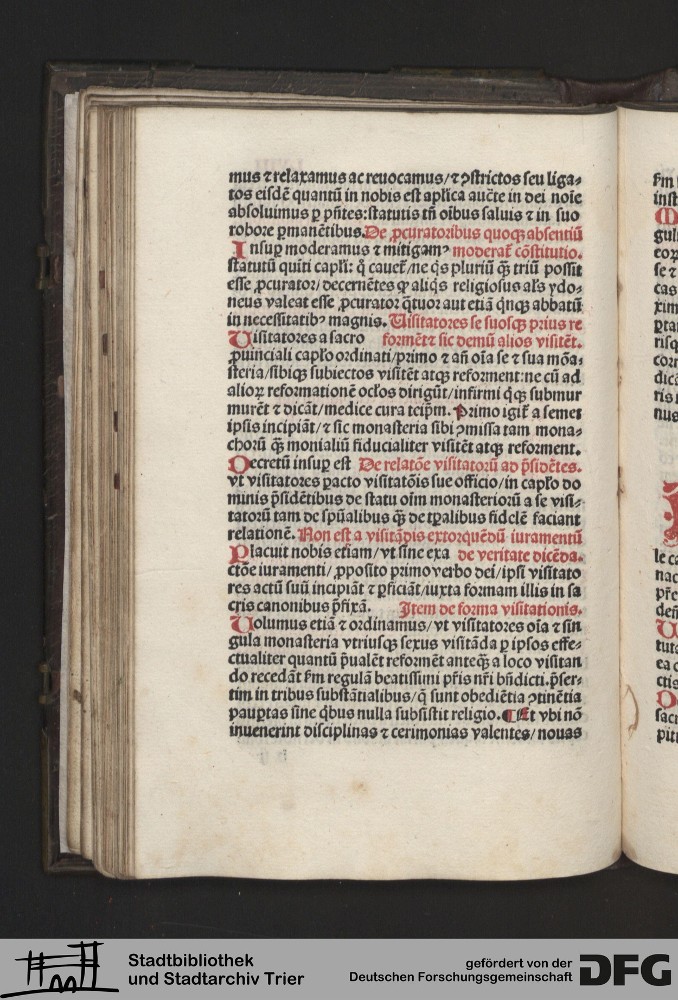 mus ⁊ relaxamus ac reuocamus/⁊ ꝯstrictos seu liga⸗
tos eisdē quantū in nobis est aplica aucte in dei noie
absoluimus ꝑ pn̄tes:statutis tn̄ oībus saluis ⁊ in suo
robore ꝑmanētibus. De ꝓcuratoribus quoqꝫ absentiū
Insuꝑ moderamus ⁊ mitigamꝰ moderat cōstitutio.
statutū quīti capli: q̇ cauet/ne q̇s pluriū q̄ꝫ triū possit
esse ꝓcurator/decernētes ꝙ aliq̇s religiosus als ydo⸗
neus valeat esse ꝓcurator q̄tuor aut etiā q̇nqꝫ abbatū
in necessitatibꝰ magnis. Uisitatores se suosqꝫ prius re
Uisitatores a sacro formēt ⁊ sic demū alios visitēt.
ꝓuinciali caplo ordinati/primo ⁊ añ oīa se ⁊ sua mōa⸗
steria/sibiqꝫ subiectos visitēt atqꝫ reforment:ne cū ad
alioꝝ reformationē oclos dirigūt/infirmi q̇qꝫ submur
murēt ⁊ dicāt/medice cura teipm̄. Primo igit a semet
ipsis incipiāt/⁊ sic monasteria sibi ꝯmissa tam mona⸗
choꝝ q̄ꝫ monialiū fiducialiter visitēt atqꝫ reforment.
Decretū insuꝑ est De relatōe visitatorū ad p̄sidētes.
vt visitatores ꝑacto visitatōis sue officio/in caplo do
minis p̄sidētibus de statu oīm monasteriorū a se visi⸗
tatorū tam de spūalibus q̄ꝫ de tꝑalibus fidelē faciant
relationē. Non est a visitādis extorquēdū iuramentū
Placuit nobis etiam/vt sine exa de veritate dicēda.
ctōe iuramenti/ꝓposito primo verbo dei/ipsi visitato
res actū suū incipiāt ⁊ ꝑficiāt/iuxta formam illis in sa
cris canonibus p̄fixā. Item de forma visitationis.
Uolumus etiā ⁊ ordinamus/vt visitatores oīa ⁊ sin
gula monasteria vtriusqꝫ sexus visitāda ꝑ ipsos effe⸗
ctualiter quantū p̄ualēt reformēt anteqꝫ a loco visitan
do recedāt ẜm regulā beatissimi pr̄is nr̄i bn̄dicti.p̄ser⸗
tim in tribus substātialibus/q̄ sunt obediētia ꝯtinētia
pauꝑtas sine q̇bus nulla subsistit religio. ¶Et vbi nō
inuenerint disciplinas ⁊ cerimonias valentes/nouas
Stadtbibliothek
und Stadtarchiv Trier
gefördert von der
Deutschen Forschungsgemeinschaft
DFG